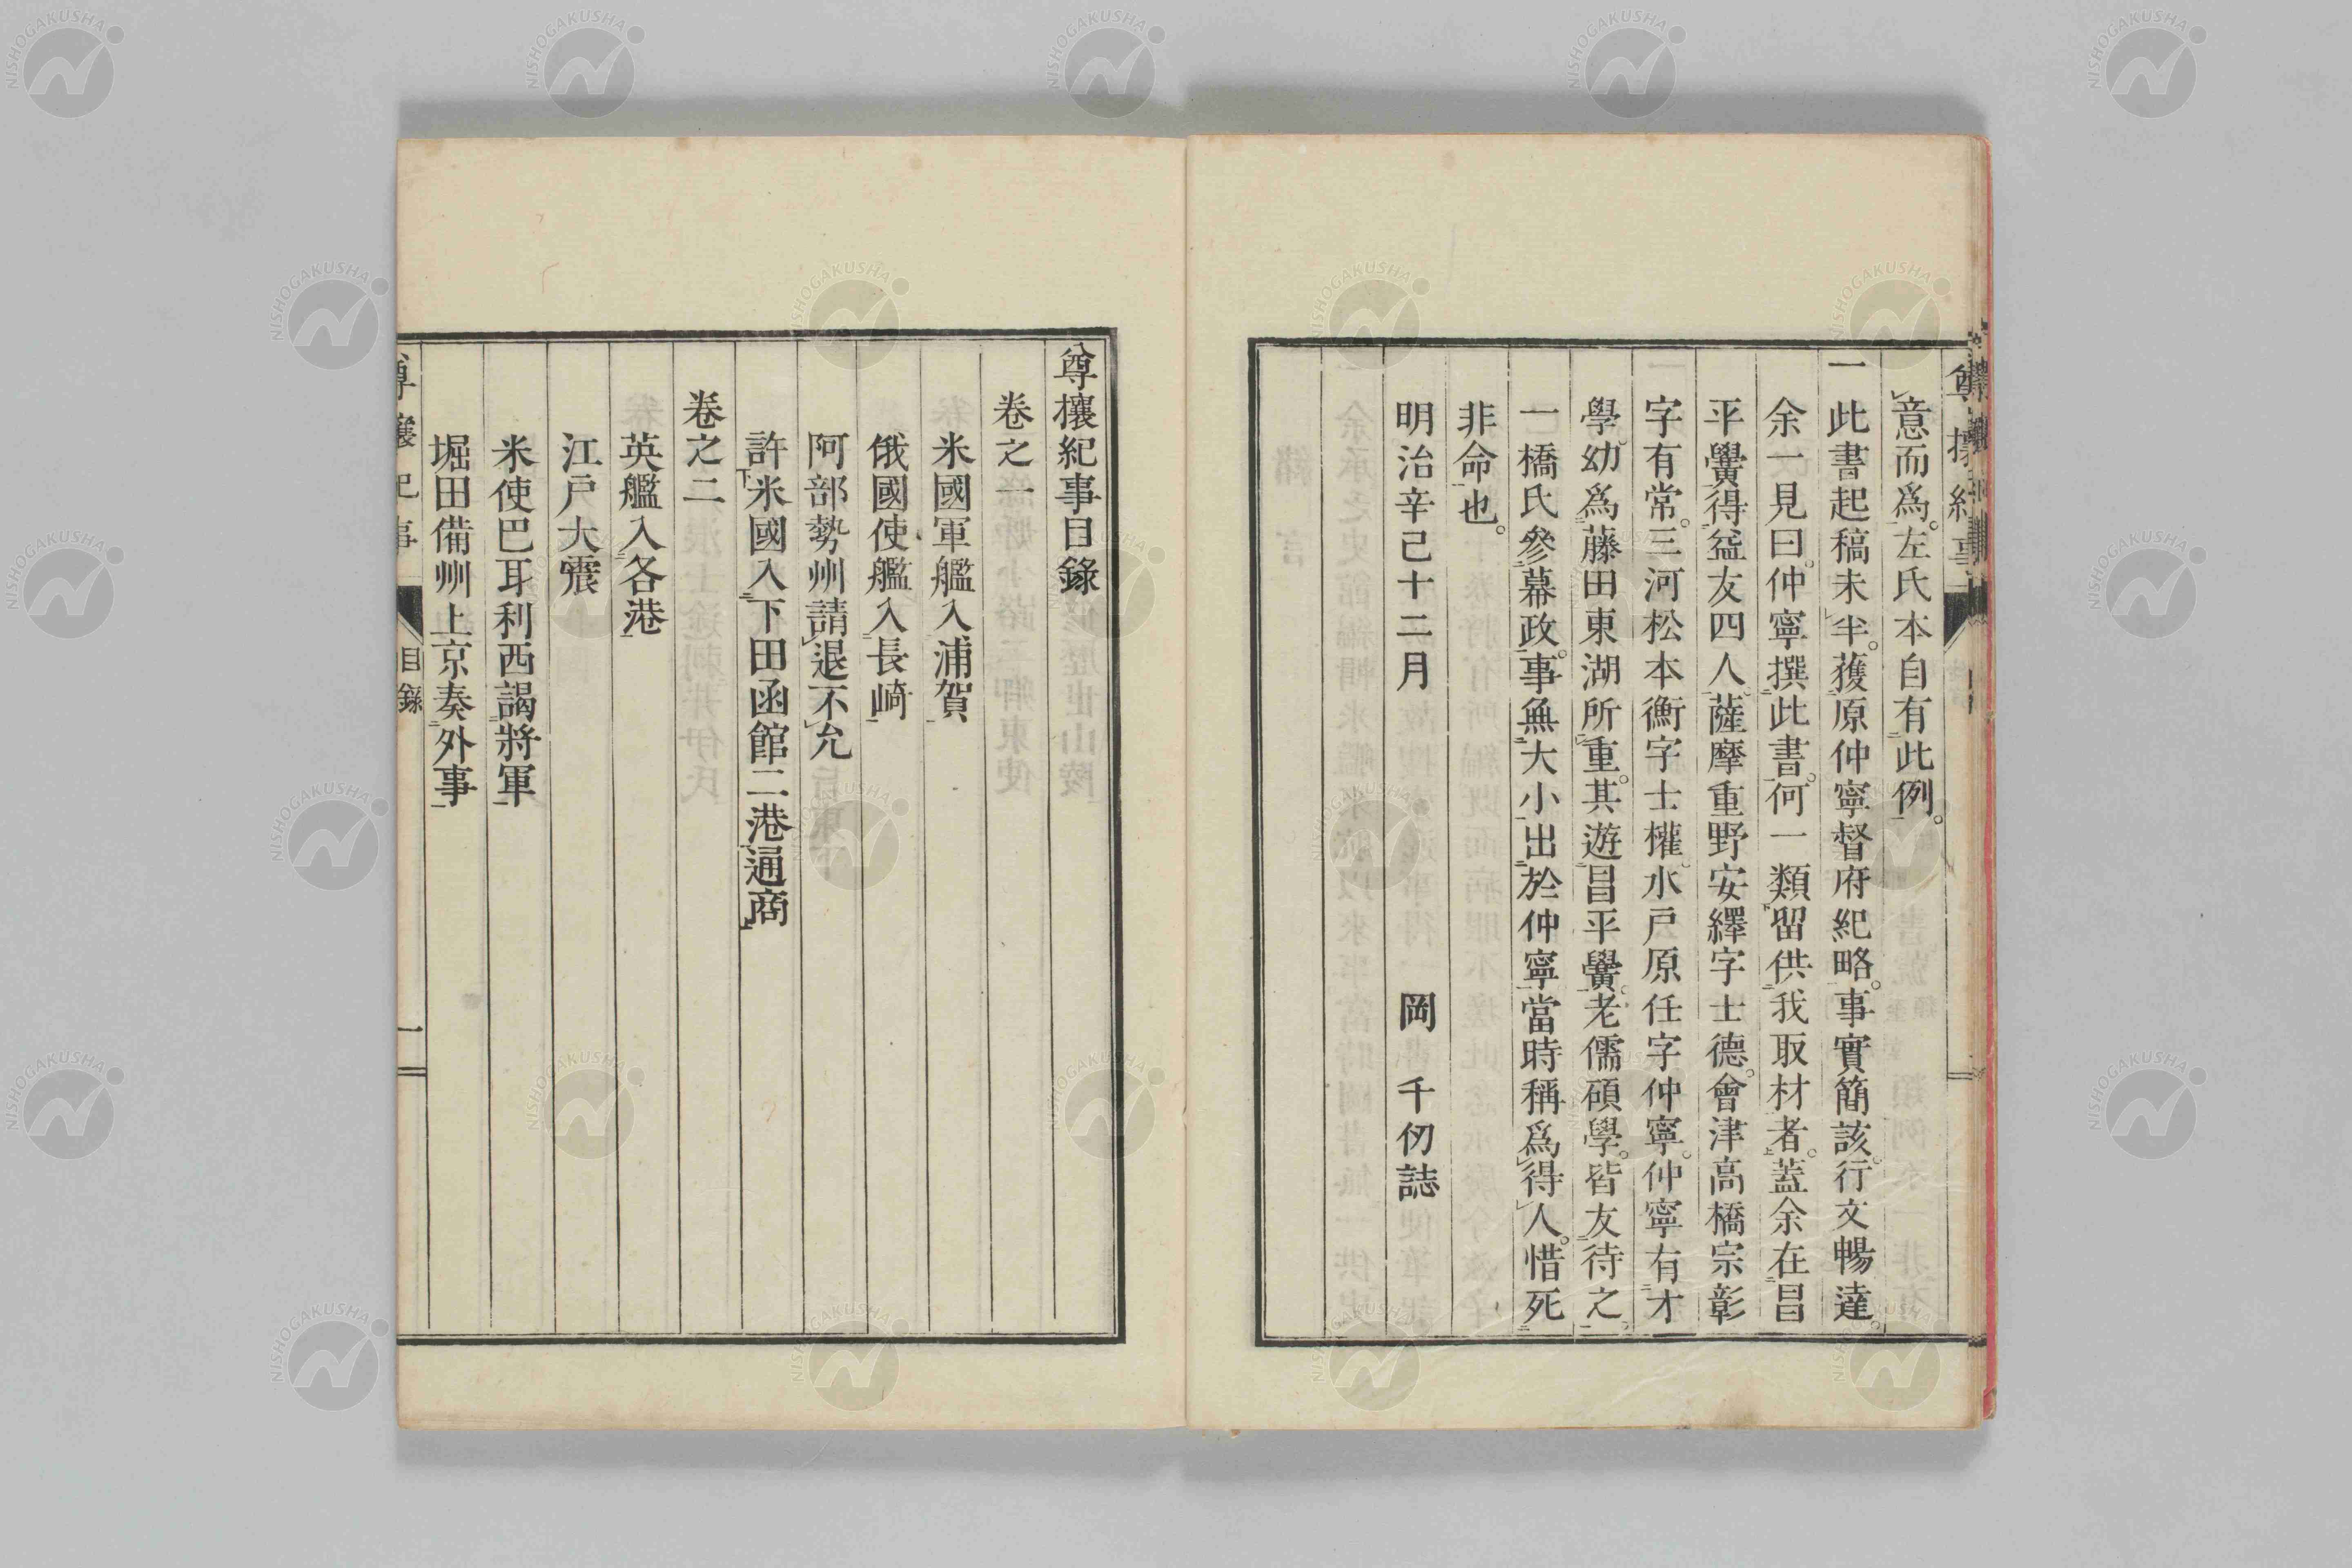 意而爲。左氏本自有此例。
一此書起稿未半。獲原仲寧督府紀略。事實簡該。行文暢達。
余一見曰。仲寧撰此書。何一類留供我取材者。蓋余在昌
平黌得益友四人。薩摩重野安繹字士德。會津高橋宗彰
字有常。三河松本衡字士權。水戶原任字仲寧。仲寧有才
學。幼爲藤田東湖所重。其遊昌平黌。老儒碩學。皆友待之。
一橋氏參幕政。事無大小出於仲寧。當時稱爲得人。惜死
非命也。
明治辛巳十二月　岡　千仞誌
尊攘紀事目錄
卷之一
米國軍艦入浦賀
俄國使艦入長崎
阿部勢州請退不允
許米國入下田函館二港通商
卷之二
英艦入各港
江戶大震
米使巴耳利西謁將軍
堀田備州上京奏外事
尊攘紀事
目錄
一
NISHOGAKUSHA